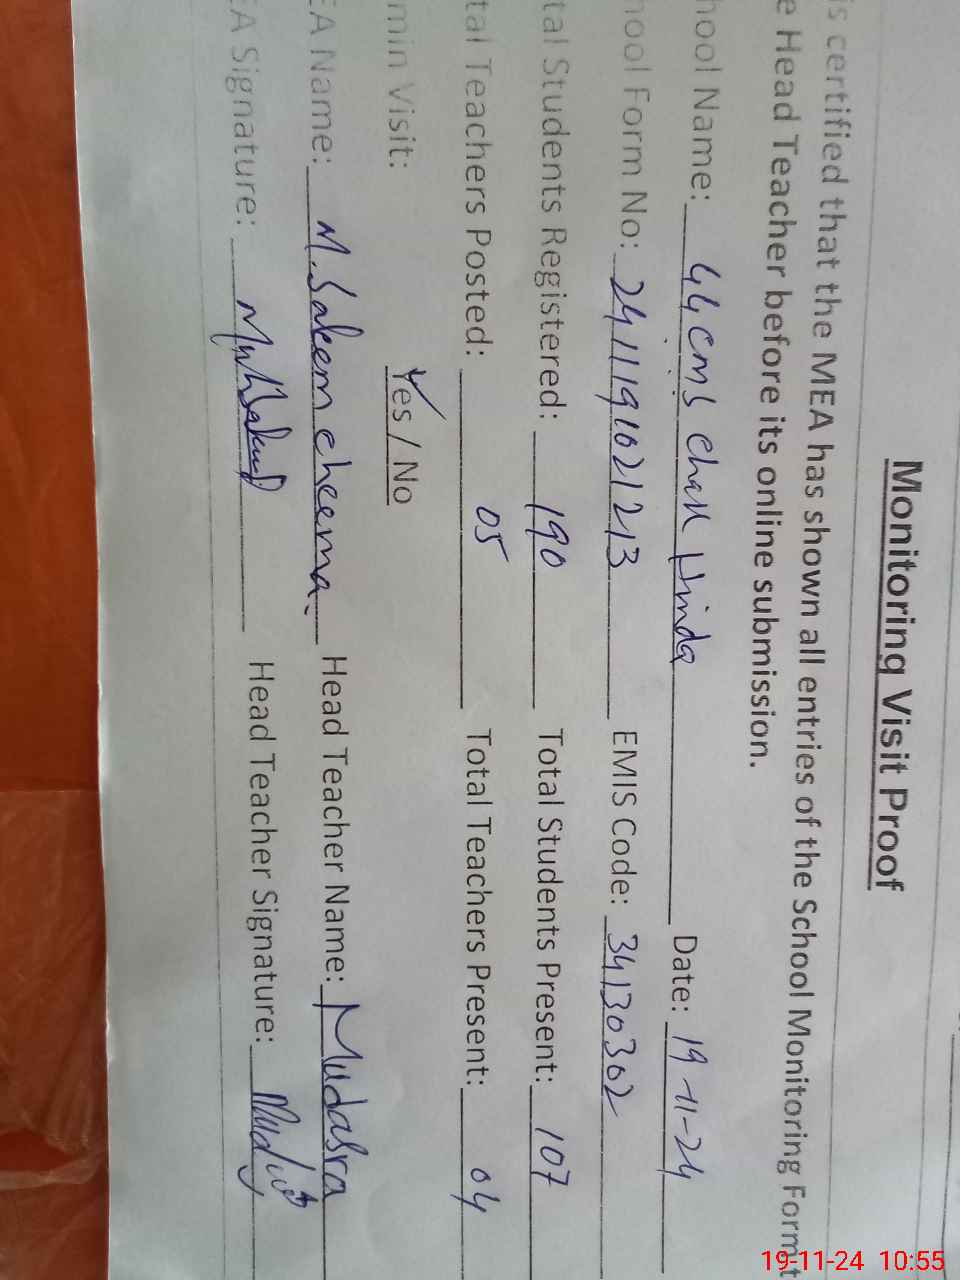 Monitoring Visit Proof
is certified that the MEA has shown all entries of the School Monitoring Form t
e Head Teacher before its online submission.
hool Name: 44 cms chak Hinda Date: 19-11-24
hool Form No: 2411191021213 EMIS Code: 34130302
tal Students Registered: 190 Total Students Present: 107
tal Teachers Posted: 05 Total Teachers Present: 04
min Visit: Yes / No
EA Name: M. Saleem cheema. Head Teacher Name: Mudasra
EA Signature: Head Teacher Signature:
19-11-24 10:55